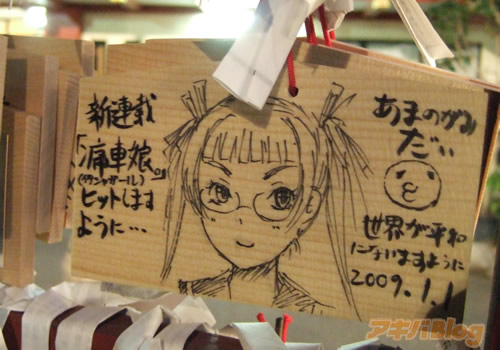 新連載
「痛車娘」
(イタシャガール)
ヒットします
ように…
あまのがみ
だい
世界が平和
になりますように
2009.1.1
アキバBlog